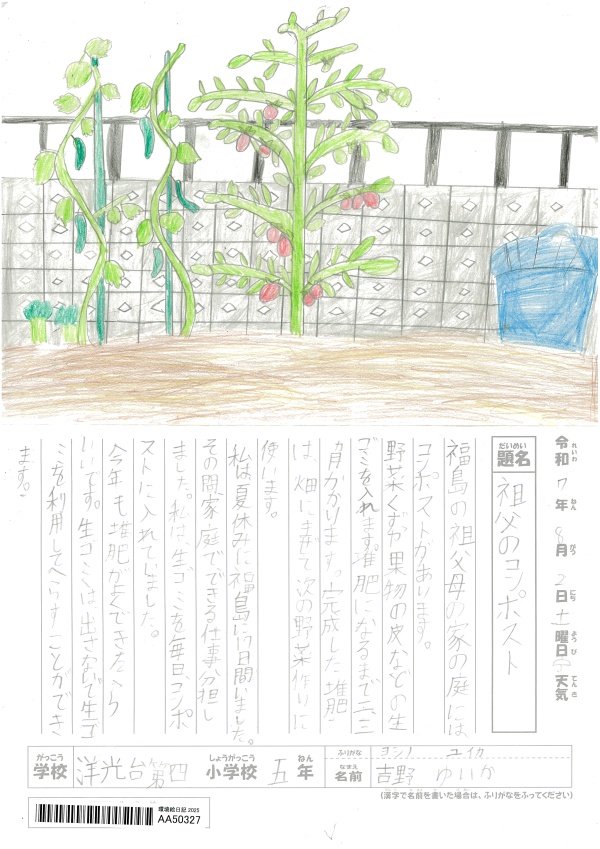 令和 7年 8月 2日 土曜日 天気
れいわ ねん がつ にち ようび てんき
だいめい
題名 祖父のコンポスト
福島の祖父母の家の庭には
コンポストがあります。
野菜くずや果物の皮などの生
ゴミを入れます。堆肥になるまで二、三
カ月かかります。完成した堆肥
は、畑にまぜて次の野菜作りに
使います。
私は夏休みに福島に17日間いました。
その間家庭でできる仕事分担し
ました。私は、生ゴミを毎日、コンポ
ストに入れていました。
今年も堆肥がよくできたら
いいです。生ゴミは出さないで生ゴ
ミを利用してへらすことができ
ます。
がっこう しょうがっこう ねん
学校 洋光台第四 小学校 五年
ふりがな ヨシノ ユイカ
なまえ
名前 吉野 ゆいか
(漢字で名前を書いた場合は、ふりがなをふってください)
環境絵日記 2025
AA50327